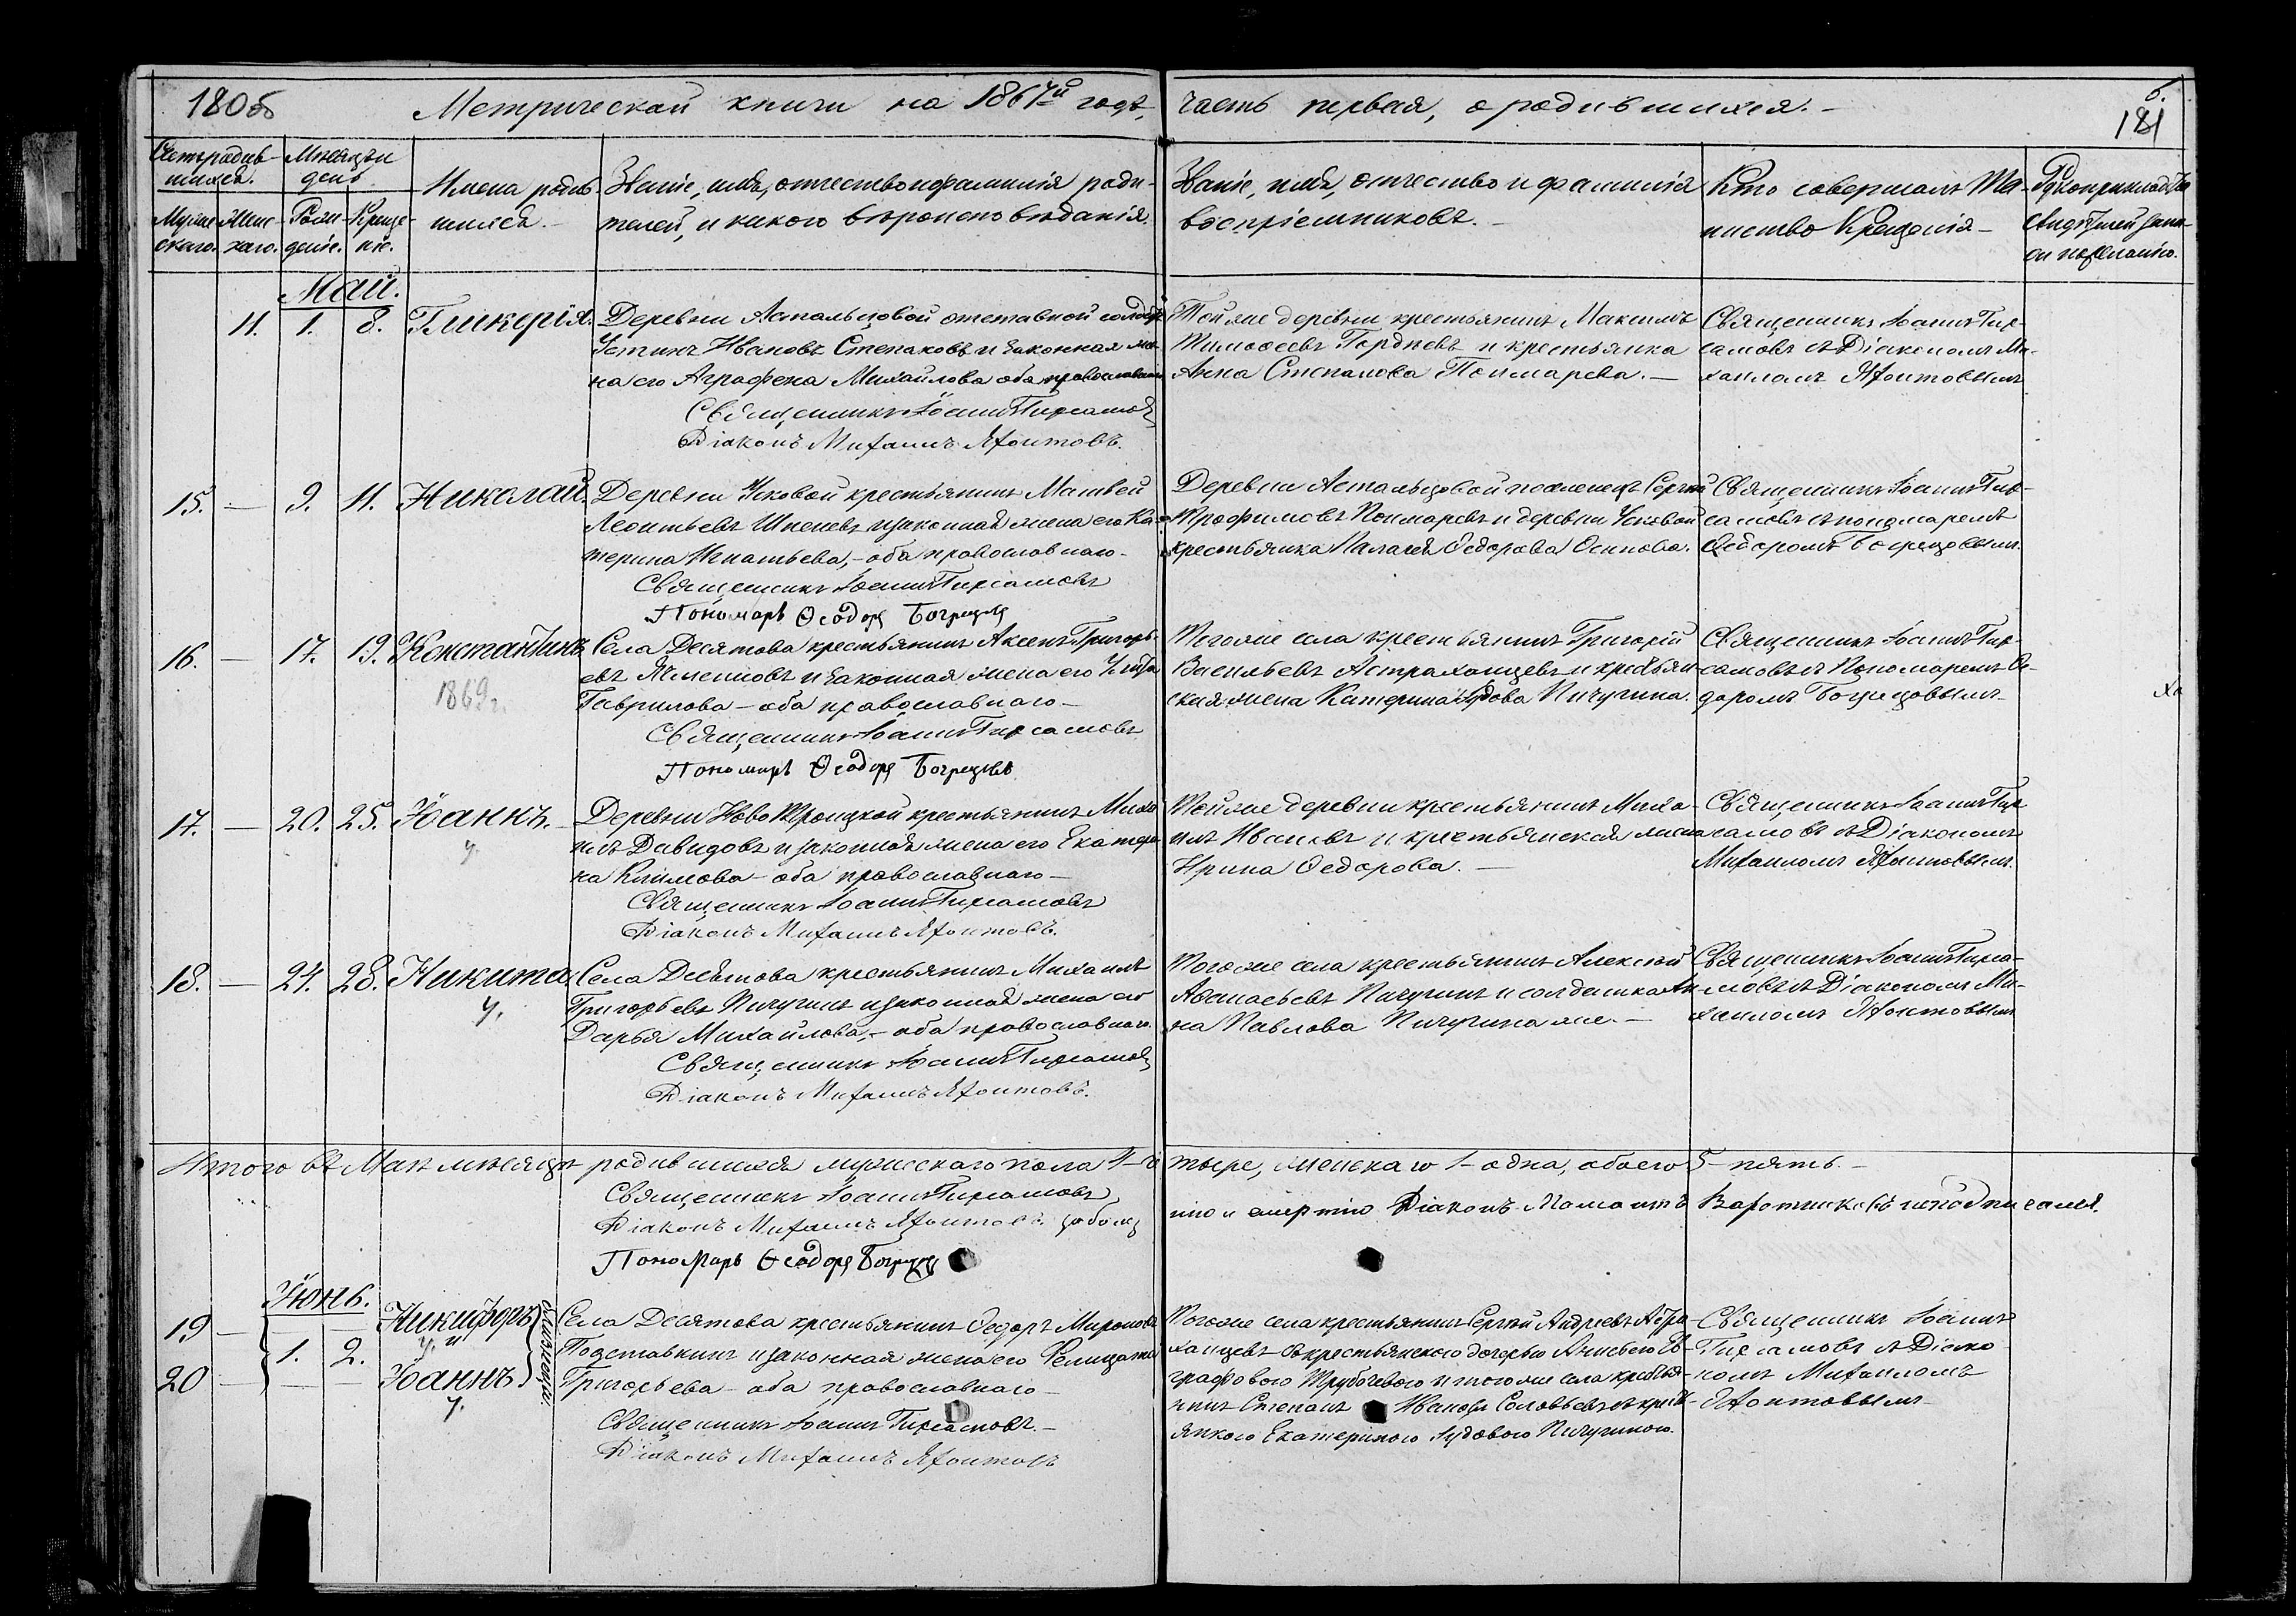 180об Метрической книги на 1867й годъ, часть первая, о родившихся. 6.
181
Счетъ родив-шихся. Мѣсяцъ и день
Мужескаго. Женскаго. Рожденіе. Крещеніе.
Имена родившихся.
Званіе, имя, отчество и фамилія роди-
телей, и какого вѣроисповѣданія.
Званіе, имя, отчество и фамилія
воспріемниковъ.
Кто совершалъ Та-
инство Крещенія
Рукоприкладство
свидѣтелей записи по желанію.
Май.
11. 1. 8. Гликерія.
Деревни Астальцовой отставной солдатъ
Устинъ Ивановъ Степановъ и законная же-
на его Аграфена Михайлова оба православнаго
Священникъ Іоаннъ Гирсамовъ
Діаконъ Михаилъ Яхонтовъ.
Той же деревни крестьянинъ Максимъ
Тимофеевъ Гордѣевъ и крестьянка
Анна Степанова Пономарева.
Священникъ Іоаннъ Гир-
самовъ съ Діакономъ Ми-
хаиломъ Яхонтовымъ
15. — 9. 11. Николай.
Деревни Усковой крестьянинъ Матвей
Леонтьевъ Шпеневъ и законная жена его Ка-
терина Игнатьева, — оба православнаго
Священникъ Іоаннъ Гирсамовъ
Пономарь Ѳеодоръ Богрецовъ
Деревни Астальцовой поселенецъ Сергей
Трофимовъ Пономаревъ и деревни Усковой
крестьянка Палагея Ѳедорова Осипова.
Священникъ Іоаннъ Гир-
самовъ съ пономаремъ
Ѳедоромъ Богрецовымъ.
16. — 17. 19. Константинъ
1869г.
Села Десятова крестьянинъ Аксенъ Григорь-
евъ Яменновъ и законная жена его Улита
Гаврилова — оба православнаго —
Священникъ Іоаннъ Гирсамовъ
Пономарь Ѳеодоръ Богрецовъ
Тогоже села крестьянинъ Григорій
Васильевъ Астраханцевъ и крестьян-
ская жена Катерина Іудова Пичугина.
Священникъ Іоаннъ Гир-
самовъ съ Пономаремъ Ѳе-
доромъ Богрецовымъ
17. — 20. 25. Іоаннъ.
у.
Деревни НовоТроицкой крестьянинъ Миха-
илъ Давидовъ и законная жена его Екатери-
на Климова — оба православнаго —
Священникъ Іоаннъ Гирсамовъ
Діаконъ Михаилъ Яхонтовъ.
Той же деревни крестьянинъ Миха-
илъ Ивановъ и крестьянская жена
Ирина Ѳедорова. —
Священникъ Іоаннъ Гир-
самовъ съ Діакономъ
Михаиломъ Яхонтовымъ.
18. — 24. 28. Никита.
у.
Села Десятова крестьянинъ Михаилъ
Григорьевъ Пичугинъ и законная жена его
Дарья Михайлова, — оба православнаго.
Священникъ Іоаннъ Гирсамовъ
Діаконъ Михаилъ Яхонтовъ.
Тогоже села крестьянинъ Алексѣй
Аѳанасьевъ Пичугинъ и солдатка Ан-
на Павлова Пичугина же. —
Священникъ Іоаннъ Гирса-
мовъ съ Діакономъ Ми-
хаиломъ Яхонтовымъ
Итого въ Маѣ мѣсяцѣ родившихся мужескаго пола 4 — че-
тыре, женскаго 1 — одна, обоего 5 — пять. —
Священникъ Іоаннъ Гирсамовъ
Діаконъ Михаилъ Яхонтовъ
Пономарь Ѳеодоръ Богрецовъ
Іюнь.
19 — 1. 2. Никифоръ
у. и
20 — Іоаннъ
у.
близнецы.
Села Десятова крестьянинъ Ѳедоръ Мироновъ
Подставкинъ и законная жена его Фелицата
Григорьева — оба православнаго —
Священникъ Іоаннъ Гирсамовъ. —
Діаконъ Михаилъ Яхонтовъ
Тогоже села крестьянинъ Сергѣй Андреевъ Астра-
ханцевъ съ крестьянскою дочерью Анисьею Ев-
графовою Трубачевою и тогоже села крестья-
нинъ Степанъ Ивановъ Соловьевъ съ кресть-
янкою Екатериною Іудовою Пичугиною.
Священникъ Іоаннъ
Гирсамовъ съ Діако-
номъ Михаиломъ
Яхонтовымъ